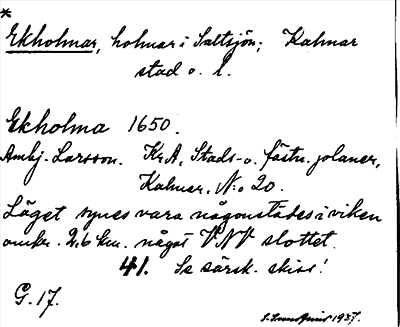 *
Ekholmar, holmar i Saltsjön; Kalmar
stad o. l.
Ekholma 1650.
Amhj. Larsson. KrA, Stads- o. fästn. planer,
Kalmar. No 20.
Läget synes vara någonstädes i viken
omkr. 2,6 km. något VNV slottet.
41. Se särsk. skiss!
G. 17.
1937.